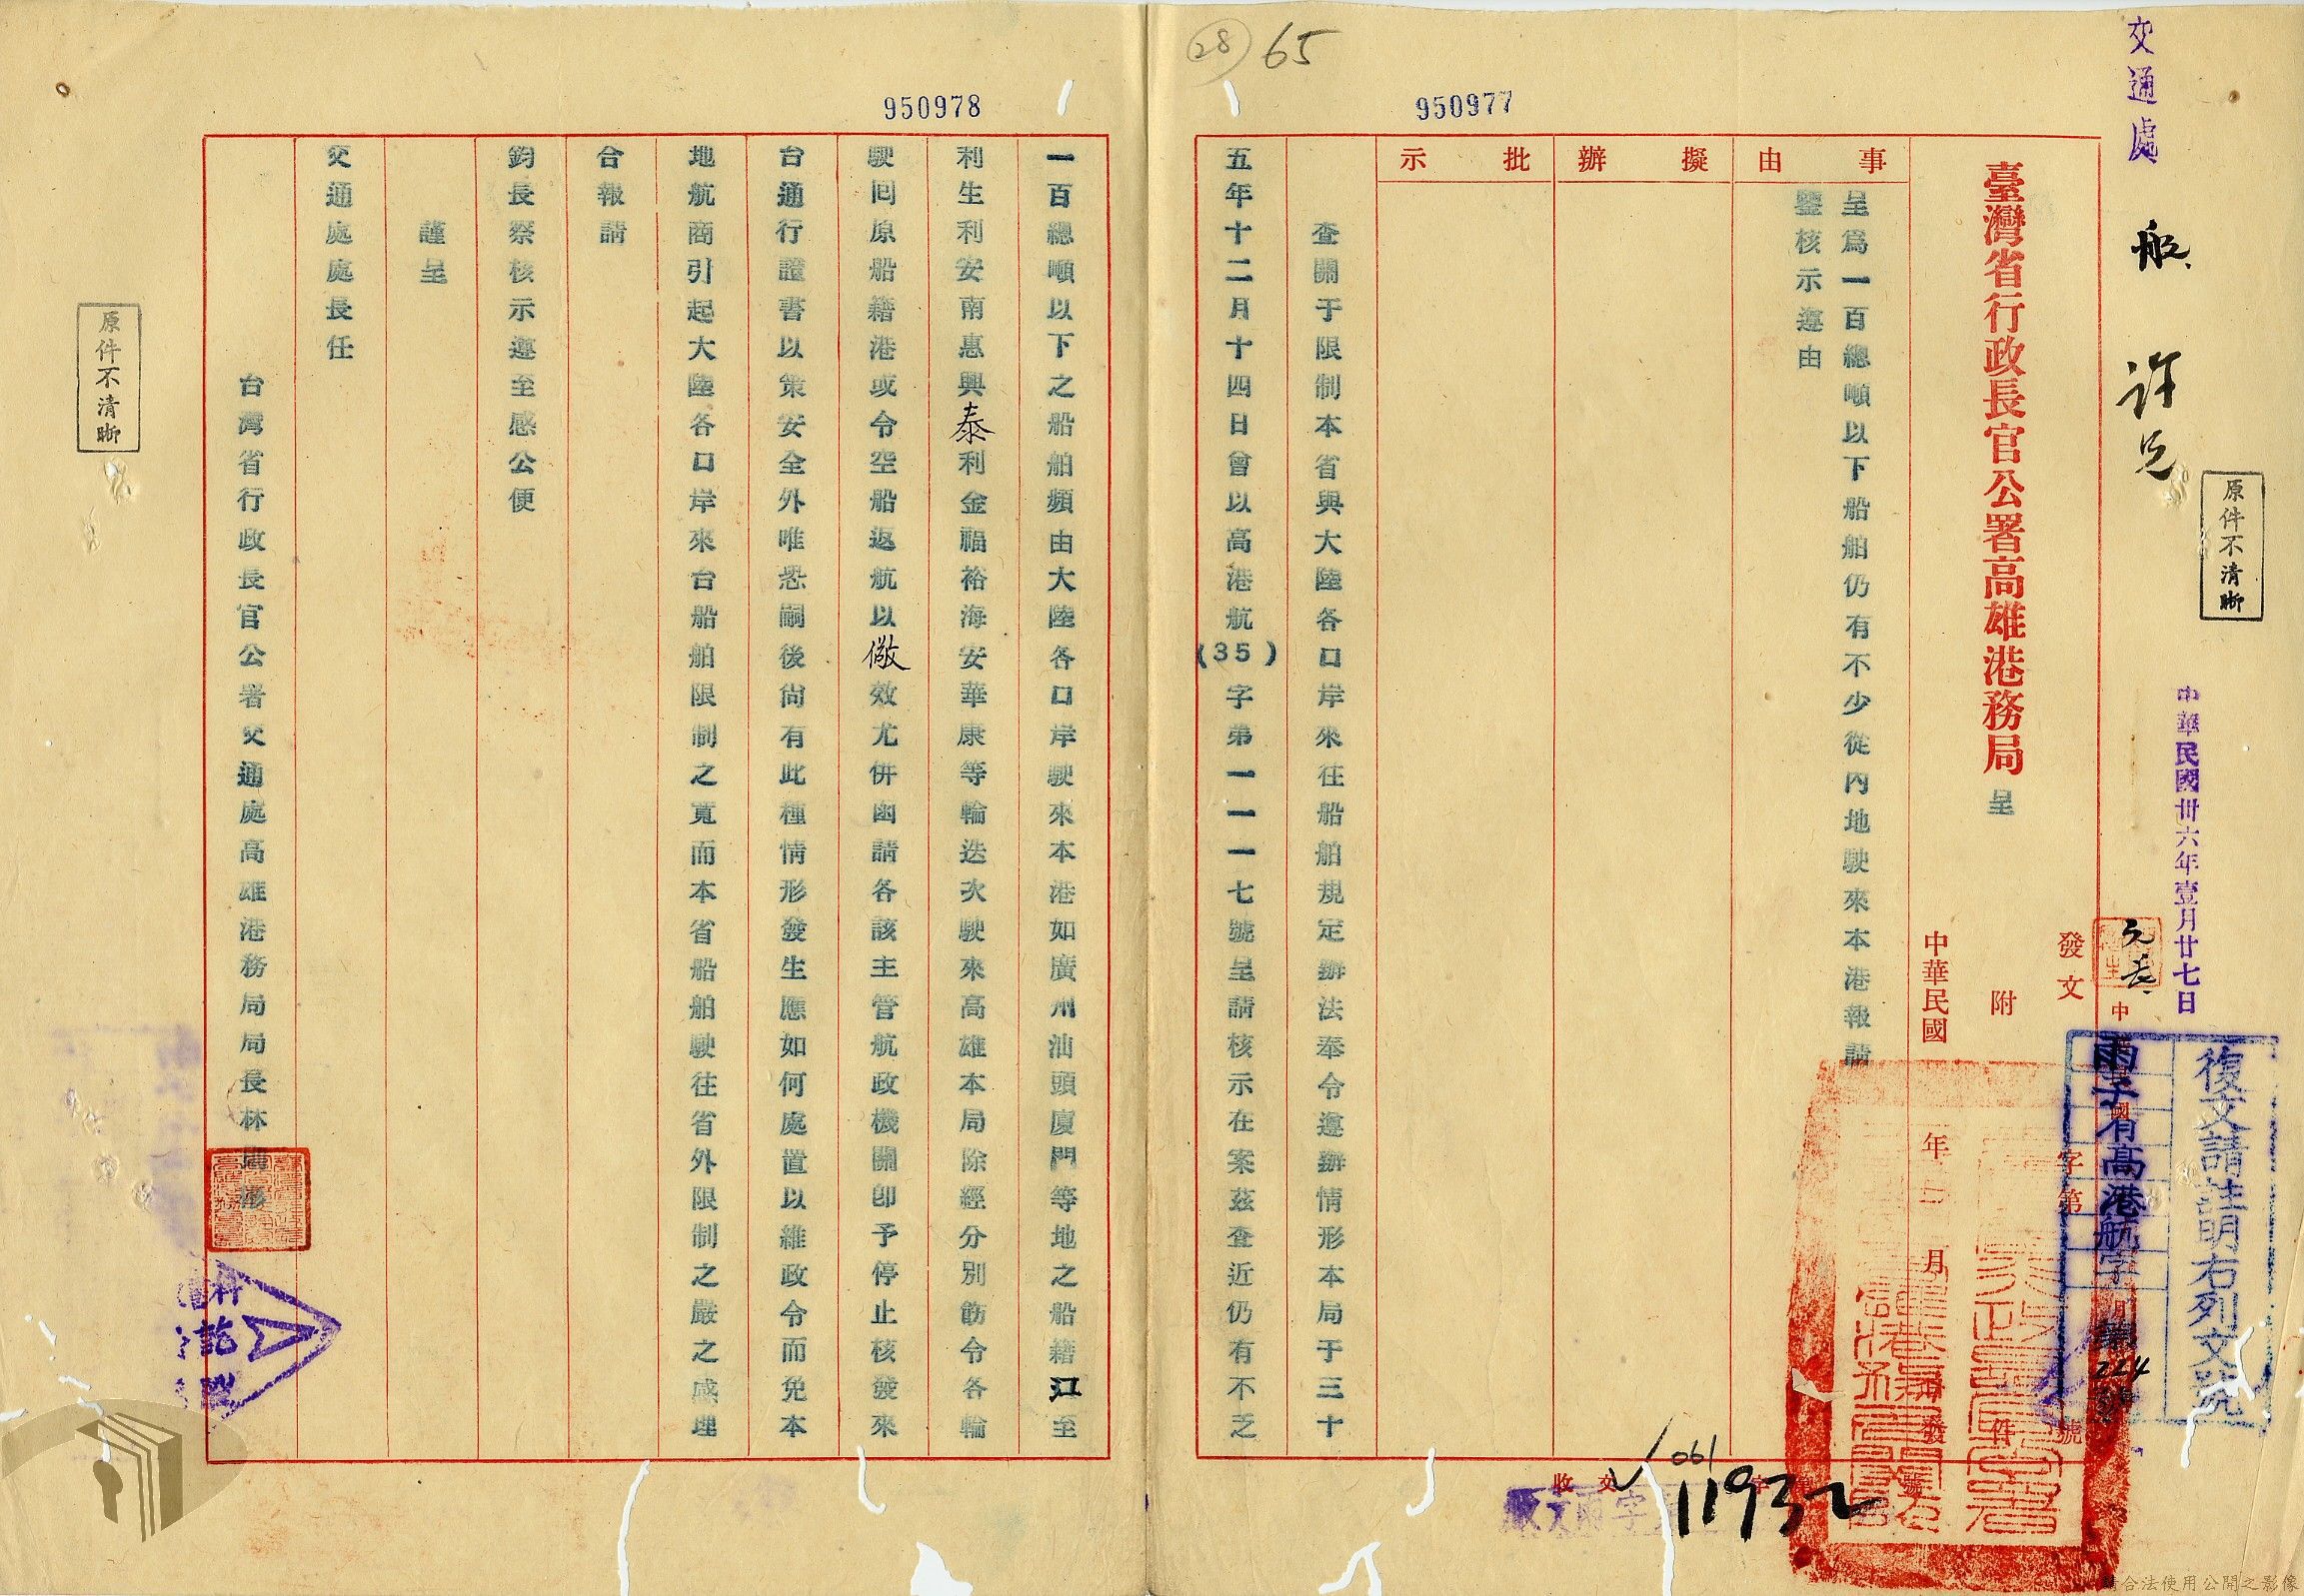 交通處
船
許
65
28
950977
950978
原件不清晰
中華民國卅六年壹月廿七日
復文請註明右列文號
雨子有高港航字第224號
發文 字第 號
附 件
中華民國 年 月 發
臺灣省行政長官公署高雄港務局 呈
事由
呈為一百總噸以下船舶仍有不少從內地駛來本港報請
鑒核示遵由
擬辦
批示
查關于限制本省與大陸各口岸來往船舶規定辦法奉令遵辦情形本局于三十
五年十二月十四日曾以高港航(35)字第一一一七號呈請核示在案茲查近仍有不乏
收文 字 號
061
11932
一百總噸以下之船舶頻由大陸各口岸駛來本港如廣州汕頭廈門等地之船籍江至
利生利安南惠興泰利金福裕海安華康等輪迭次駛來高雄本局除經分別飭令各輪
駛回原船籍港或令空船返航以儆效尤併函請各該主管航政機關即予停止核發來
台通行證書以策安全外唯恐嗣後尚有此種情形發生應如何處置以維政令而免本
地航商引起大陸各口岸來台船舶限制之寬而本省船舶駛往省外限制之嚴之感理
合報請
鈞長察核示遵至感公便
謹呈
交通處處長任
台灣省行政長官公署交通處高雄港務局局長林
原件不清晰
請合法使用公開之影像